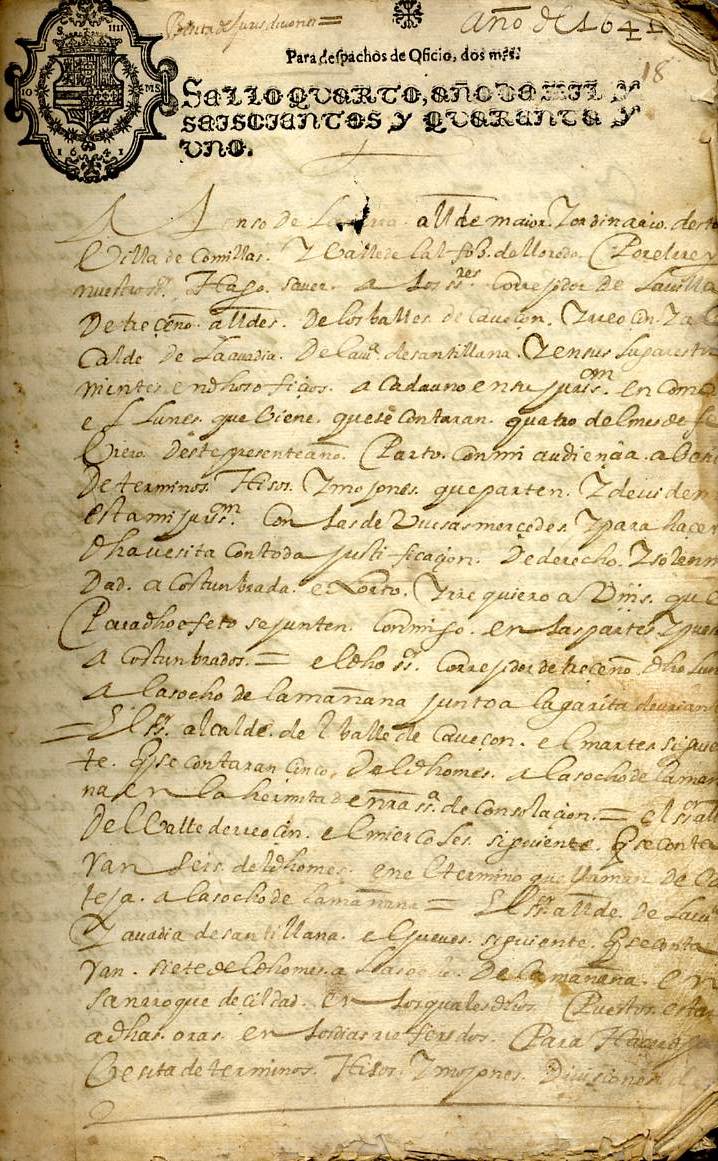 Besita de Jurisdiciones =
Año de 1641
18
Para despachos de Oficio, dos mrs.
SELLO QVARTO, AÑO DE MIL Y
SEISCIENTOS Y QVARENTA Y
VNO.
S IIII
10 MS
1641
Alonso de allde maior. Y ordinario. desta
Villa de Comillas. Y Valle de
nuestro sr. Hago. saver. a los sres. Corregidor de la villa
De treceño. alldes. De los balles de Caveçon. Y reocin. Y al
Calde de La avadia. De la va. de santillana. Y en sus lugaresti
nientes en dhos ofiçios. a cada uno en su jurison. en como
el Lunes. que biene. que se contaran. quatro del mes de fe
brero. deste presente año. Parto. Con mi audiençia. a
De terminos. Hisos. Y mojones. que parten. Y deviden
esta mi jurisn. Con las de Vuesas mercedes. Y para hacer
dha vesita con toda justificaçion. De derecho. Y solenni
Dad. a costunbrada. exorto. Y requiero a Vms. que
Para dho efeto se junten. Conmigo. en las partes. Y pues
a costunbrados. = el dho sr. Corregidor de treceño. dho lun
a las ocho de la mañana junto a la garita
= El sr. alcalde. de l balle de Caveçon. el martes siguie
te. q se contaran cinco. Del dho mes. a las ocho de la maña
na en la hermita de nra sra. de Consolaçion. = el sr. all
Del Valle de reoçin. el miercoles. siguiente. q se conta
ran seis. del dho mes. en el termino que llaman de
teja. a las ocho de la mañana = El sr. allde. De la
Y avadia de santillana. el jueves. siguiente. q se conta
ran. siete del dho mes. a las ocho. De la mañana. en
san roque de cildad. en los quales dhos. Puestos. estar
a dhas. oras. en los dias rreferidos. Para Hacer
Vesita de terminos. Hisos. Y mojones. Divisiones